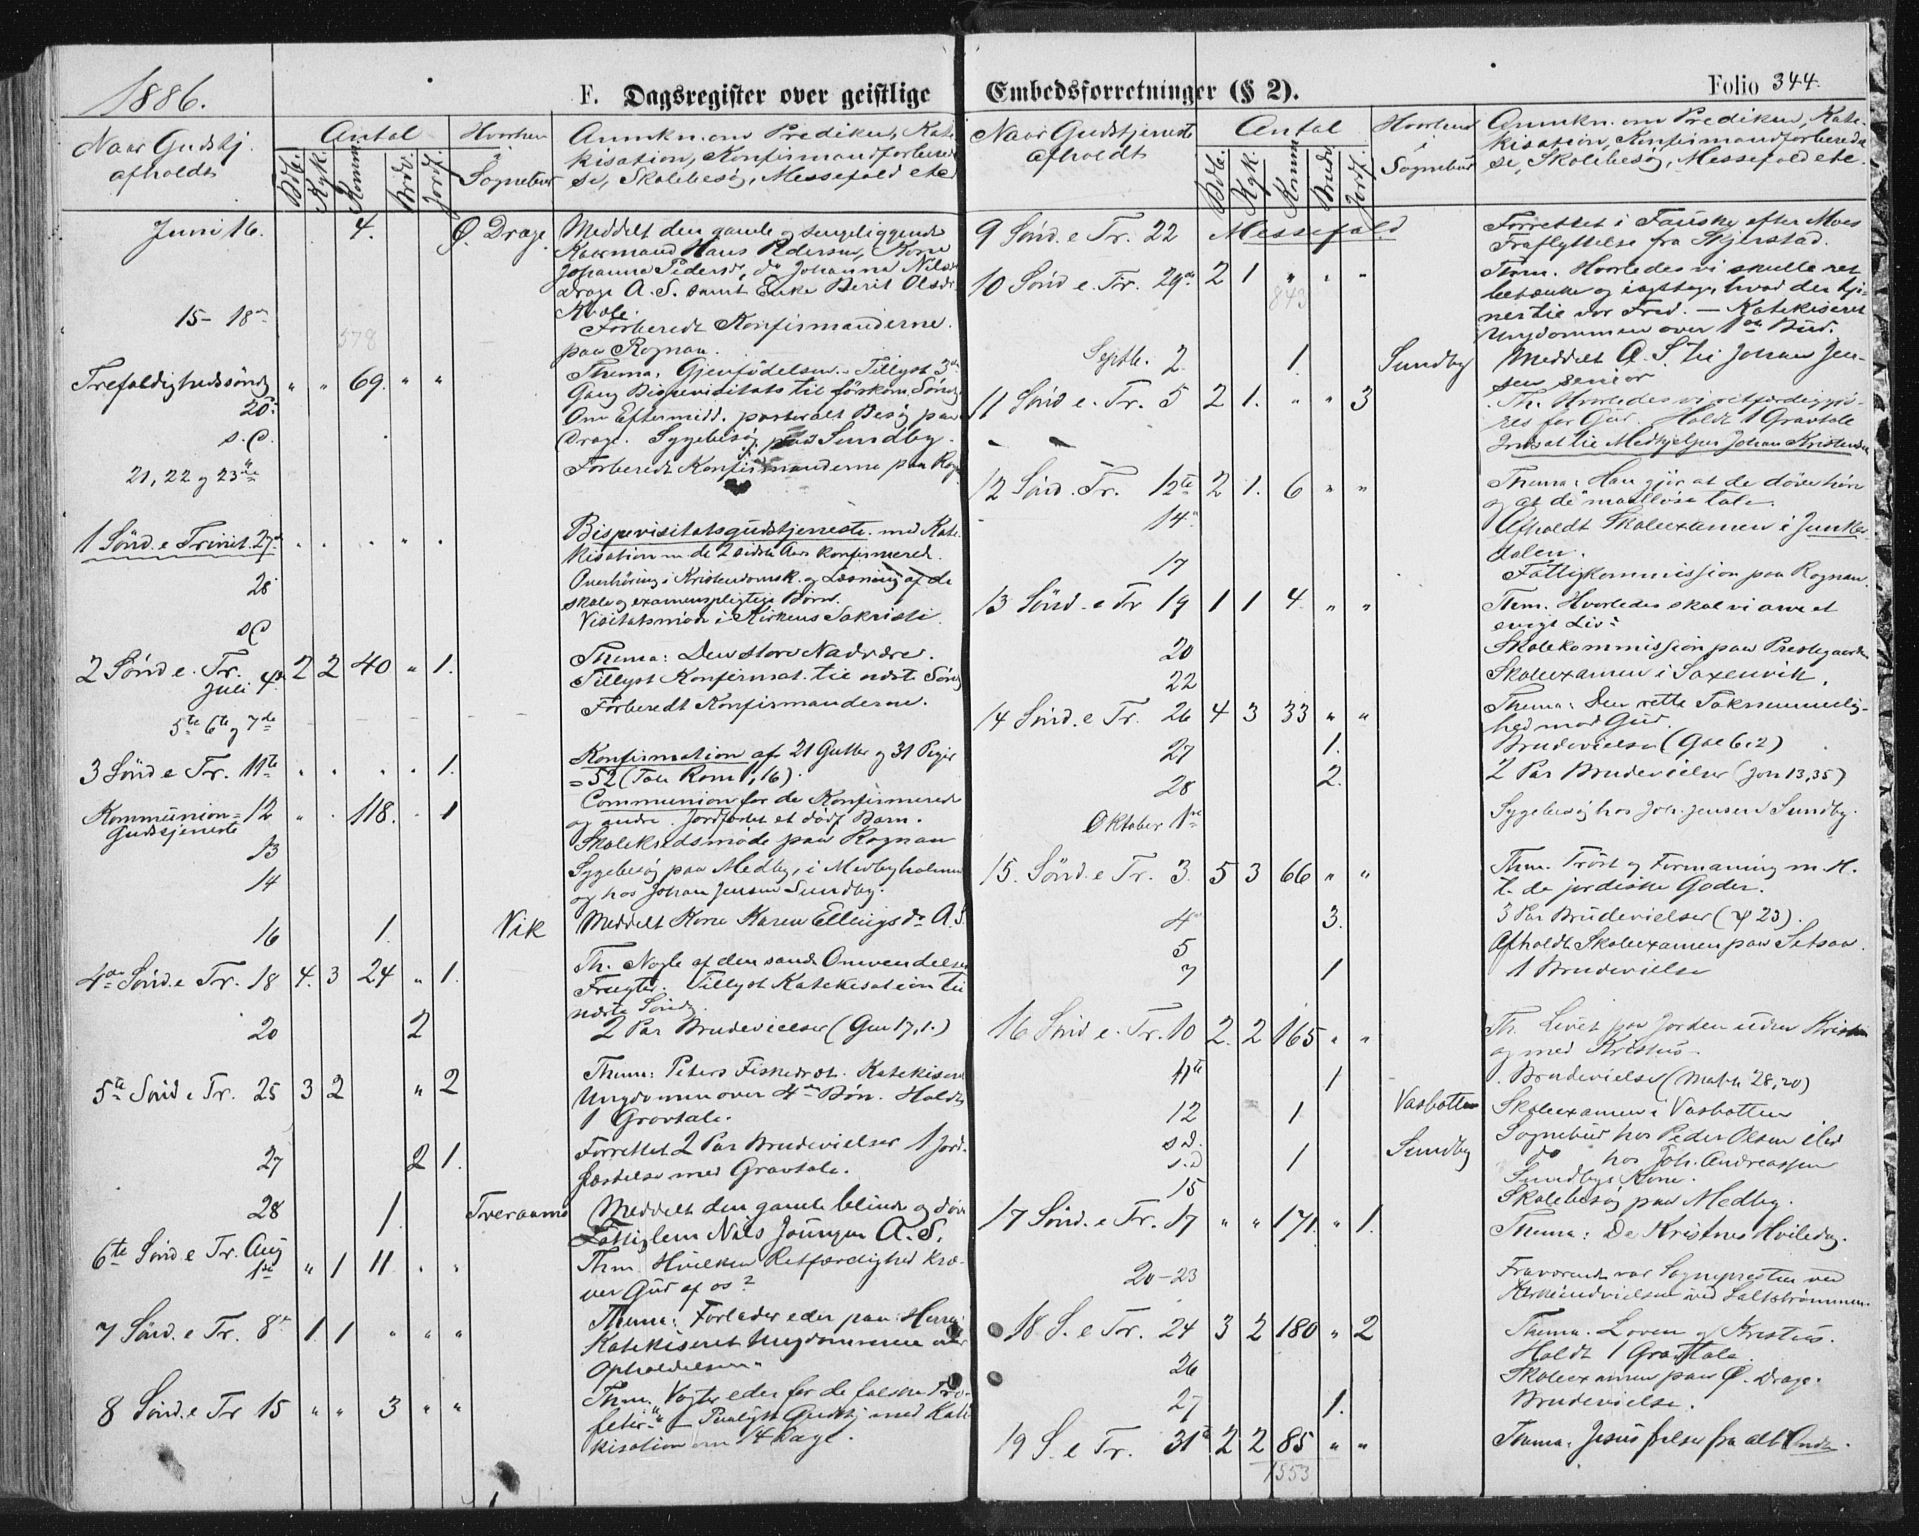 1886.
F. Dagsregister over geistlige
Naar Gudstj.
afholdt
Antal
Bdb.
Kgk.
Komm.
Brdv.
Jordf.
Hvorhen
i
Sognebud
Anmkn. om Prediken, Kate-
kisation, Konfirmandforberedel-
se, Skolebesøg, Messefald etc
Juni 16. 4. Ø. Drage.
Meddelt den gamle og sengeliggende
Kaarmand Hans Pedersen, Kone
Johanna Pedersd., do Johanna Nilsd.
Drage A. S. samt Enke Berit Olsdr.
Kvale.
15-18de
Forberedt Konfirmanderne
paa Rognan.
578
Trefoldighedssøndg 20de " " 69. " "
Thema: Gjenfødelsen. - Tillyst 3die
Gang Bispevisitats til førstkom. Søndg.
s. D.
Om Eftermidd. pastoralt Besøg paa
Drage. Sygebesøg paa Sundby.
21, 22 og 23de
Forberedt Konfirmanderne paa Rogn.
1 Sønd. e Trinit. 27de
Bispevisitatsgudstjeneste med Kate-
kisation m de 2 sidste Aars Konfirmered.
28
Overhøring i Kristendomsk. og Læsning af de
skole og examenspligtige Børn.
s D
Visitatsmøde i Kirkens Sakristi.
2 Sønd e. Tr. Juli 4de 2 2 40 " 1.
Thema: Den store Nadvere.
Tillyst Konfirmat. til næst Søndg
5te 6te og 7de
Forberedt Konfirmanderne.
3 Sønd e Tr. 11te . . . . 1.
Konfirmation af 21 Gutter og 31 Piger
= 52 (Tale Rom 1, 16).
Kommunion= 12 " . 118. . 1
Gudstjeneste
Communion for de Konfirmerede
og andre. Jordfæstet et dødf Barn.
13
Skolekredsmøde paa Rognan
14
Sygebesøg paa Medby, i Medbyholmen
og hos Johan Jensen Sundby.
16 1. Vik
Meddelt Kone Karen Ellingsdr A. S.
4de Sønd. e Tr. 18 4. 3 24 " 1.
Th. Nogle af den sande Omvendelses
Frugter. Tillyst Katekisation til
næste Søndg.
20 2
2 Par Brudevielser (Gen 17, 1.)
5te Sønd e Tr. 25 3 2 " 2
Thema: Peters Fiskedræt. Katekiseret
Ungdommen over 4de Bøn. Holdt
1 Gravtale.
27 2 1.
Forrettet 2 Par Brudevielser 1 Jord-
fæstelse med Gravtale.
28 1. Tveraamo
Meddelt den gamle blinde og døve
Fattiglem Nils A. S.
6te Sønd e Tr. Aug 1ste " 1 11 . .
Thm. Hvilken Retfærdighed kræ-
ver Gud af os?
7 Sønd. e Tr. 8de 1. 1 " " "
Thema: Forlader eder paa Herren.
Katekiseret Ungdommen over
Opholdelsen"
8 Sønd. e Tr 15 " " 3 " "
Thm. "Vogter eder for de falske Pro-
feter" - Paalyst Gudstj med Kate
kisation om 14 Dage.
Embedsforretninger (§ 2).
Folio 344.
Naar Gudstjeneste
afholdt
Antal
Bdb.
Kgk.
Komm.
Brudv.
Jordf.
Hvorhen
i
Sognebud
Anmkn. om Prediken, Kate-
kisation, Konfirmandforberedel-
se, Skolebesøg, Messefald etc.
9 Sønd. e Tr. 22 Messefald
Forrettet i Fauske efter Moes
Fraflyttelse fra Skjerstad.
10 Sønd e Tr. 29de 2 1 " " "
843
Thm. Hvorledes vi skulle ret
betænke og iagttage, hvad der tje-
ner til vor Fred. - Katekiseret
Ungdommen over 1ste Bud.
Septb. 2. 1. Sundby
Meddelt A. S. til Johan Jen-
sen senior
11 Sønd e. Tr. 5 2 1. " " 3
Th. Hvorledes vi retfærdiggjø-
res for Gud. Holdt 1 Gravtale
Indsat til Medhjelper Johan Kristensen
12 Sønd. Tr. 12te 2 1. 6 " "
Thema: Han gjør at de døve høre
og at de maalløse tale.
14de
Afholdt Skoleexamen i Junker-
dalen.
17
Fattigkommission paa Rognan.
13 Sønd. e Tr 19 1 1 4. " "
Thm. Hvorledes skal vi arve et
evigt Liv?
20
Skolekommission paa Prestegaarden
22
Skoleexamen i Saxenvik.
14 Sønd. e Tr. 26 4 3 33 " "
Thema: Den rette Taknemmelig-
hed mod Gud.
27 1.
Brudevielse (Gal 6: 2)
28 2.
2 Par Brudevielser (Joh 13, 35)
Oktober 1ste
Sygebesøg hos Joh. Jensen Sundby.
15. Sønd. e Tr. 3. 5 3 66 " "
Thm. Trøst og Formaning m. H.
t. de jordiske Goder.
4de 3.
3 Par Brudevielser (ψ 23).
5
Afholdt Skoleexamen paa Setsaa.
7 1
1 Brudevielse
16 Sønd e. Tr. 10 2. 2 165 " "
Th. Livet paa Jorden uden Kristus
og med Kristus.
11te 1
Brudevielse (Math 28, 20)
12 1 Vasbotten
Skoleexamen i Vasbotten
s d.
Sognebud hos Peder Olsen ibd
s. d 1 Sundby
do hos Joh. Andreassen
Sundbys Kone.
15
Skolebesøg paa Medby.
17 Sønd. e Tr. 17 " " 171. " 1.
Thema: De Kristnes Hviledag.
20-23
Fraværende var Sognepresten ved
Kirkeindvielsen ved Saltstrømmen.
18 S. e Tr. 24 3 2 180 " 2
Thema. Loven og Kristus.
Holdt 1 Gravtale.
26
Skoleexamen paa Ø. Drage.
27 1.
Brudevielse.
19 S. e Tr. 31te 2 2 85 " "
1553
Thema. Jesus frelser fra alt Onde.